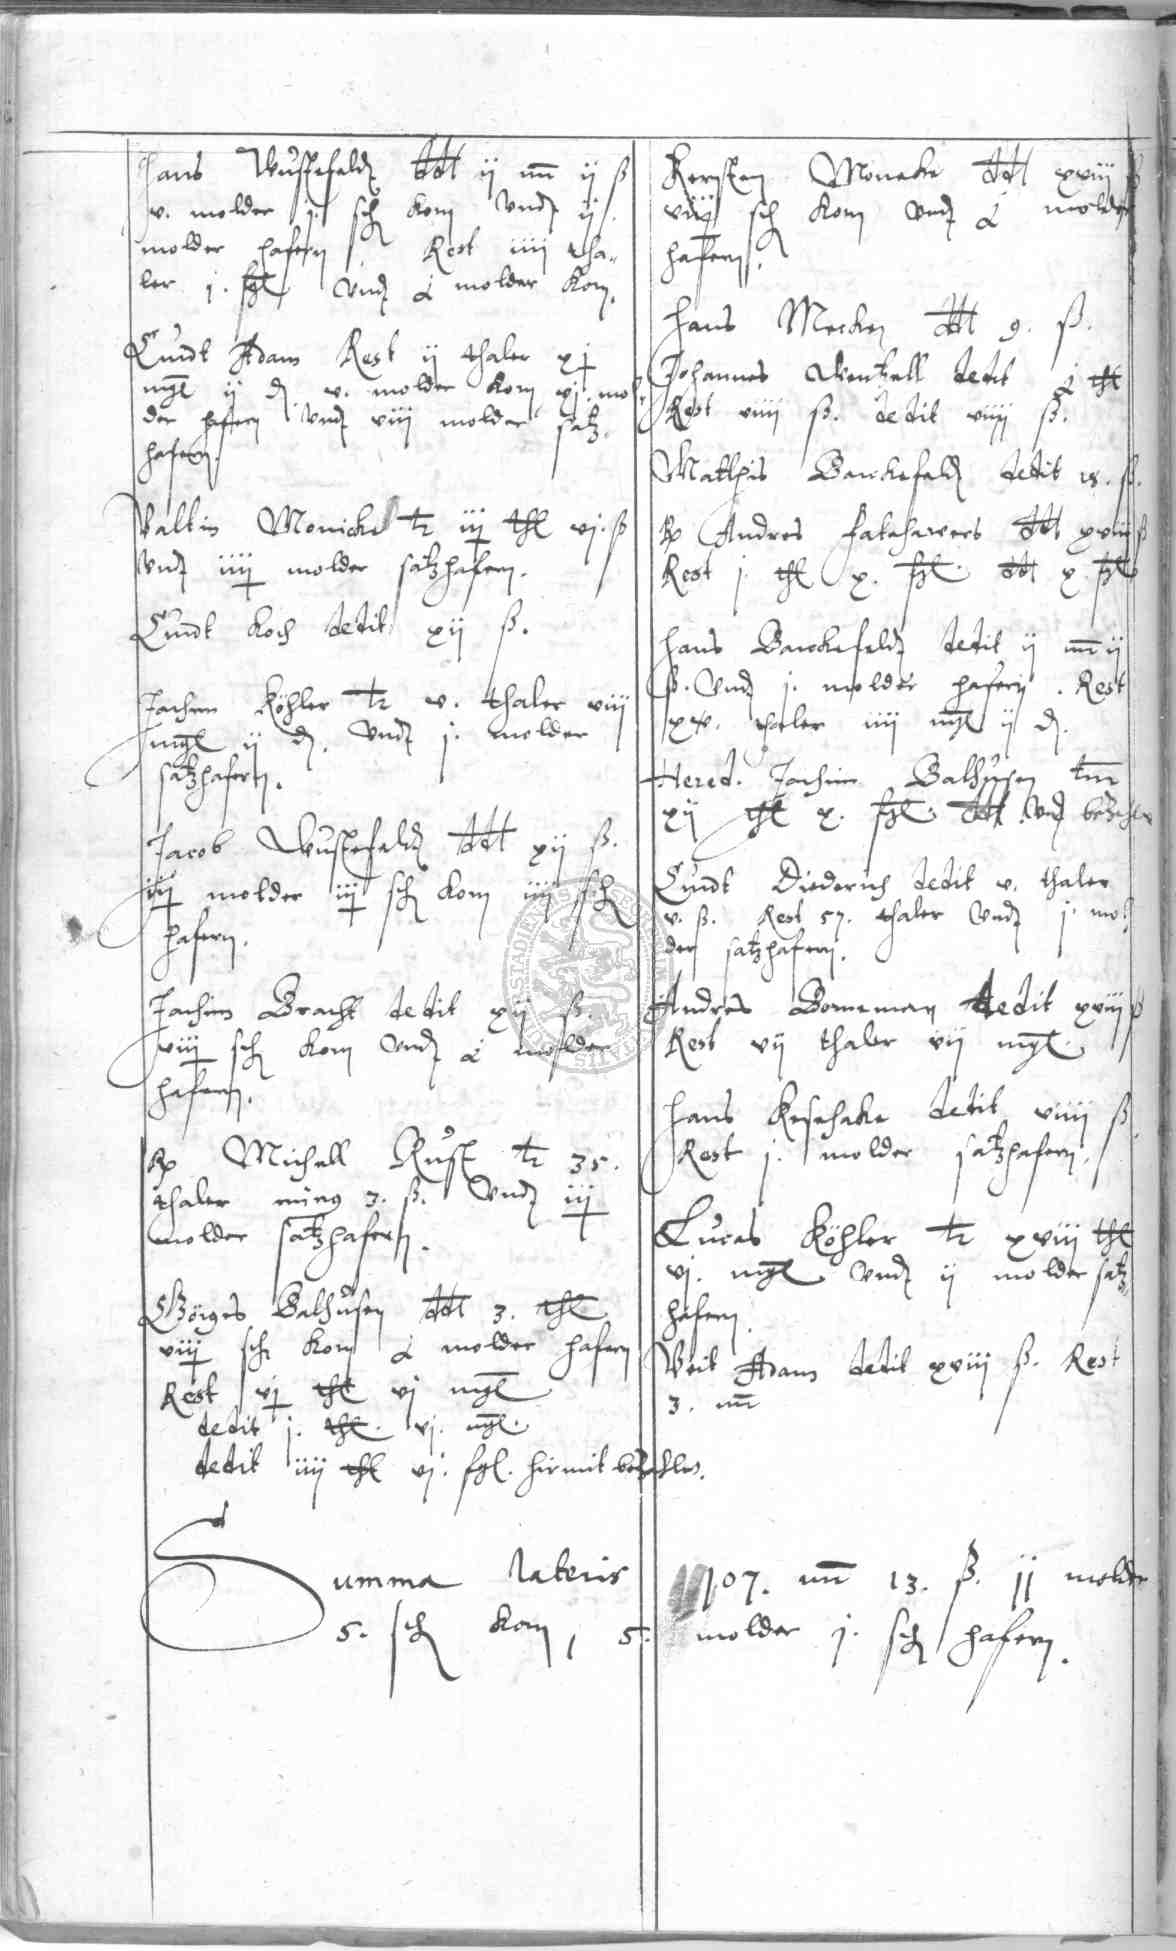 Hans Wustefeldt dedit ij mr ij ß
v. molder j. sch Korn Undt ij
molder hafern. Rest iiii tha-
ler j. fgl Undt ½ molder Korn.
Curdt Adam Rest ij thaler xj
mgl ij d v. molder Korn vj. mol-
der hafern Undt viij molder satz
hafern.
Valtin Monicke tr iij thl vj. ß
Undt iiij molder satzhafern.
Curdt Koch dedit xij ß.
Jachim Köhler tr v. thaler viij
mgl ij d. Undt j. molder
satzhafern.
Jacob Wustefeldt dedit xij ß.
iij molder iij sch Korn iiij sch
hafern.
Jachim Bracht dedit xij ß.
viij sch Korn Undt ½ molder
hafern.
Michell Rust tr 35.
thaler ming 3. ß. Undt iij
molder satzhafern.
Görges Balhusen dedit 3. thl
viij sch Korn ½ molder hafern
Rest vj thl vj mgl
dedit j. thl. vj. mgl.
dedit iiij thl vj. fgl. hirmit bezahlet.
Kersten Moneke dedit xviij ß
viij sch Korn Undt ½ molder
hafern.
Hans Mecken dedit 9. ß.
Johannes Wentzell dedit ½ thl
Rest viiij ß. dedit viiij ß.
Matthis Barckefeldt dedit 18. ß.
Andres dedit xviij ß
Rest j. thl x. fgl. dedit x. fgl
Hans Barckefeldt dedit ij mr ij
ß. Undt j. molder hafern. Rest
xv. thaler iiij mgl ij d.
Hered. Jachim Balhusen tm
xij thl x. fgl. dedit Undt bezahlt
Curdt Diederich dedit v. thaler
v. ß. Rest 57. thaler Undt j. mol-
der satzhafern.
Andres Borneman dedit xviij ß
Rest vij thaler vij mgl.
Hans Kesehake dedit viiij ß.
Rest j. molder satzhafern.
Lucas Köhler tr xviij thl
vj. mgl Undt ij molder satz-
hafern.
Veit Adam dedit xviij ß. Rest
3. mr
Summa lateris 107. mr 13. ß. jj molder
5. sch Korn, 5. molder j. sch hafern.